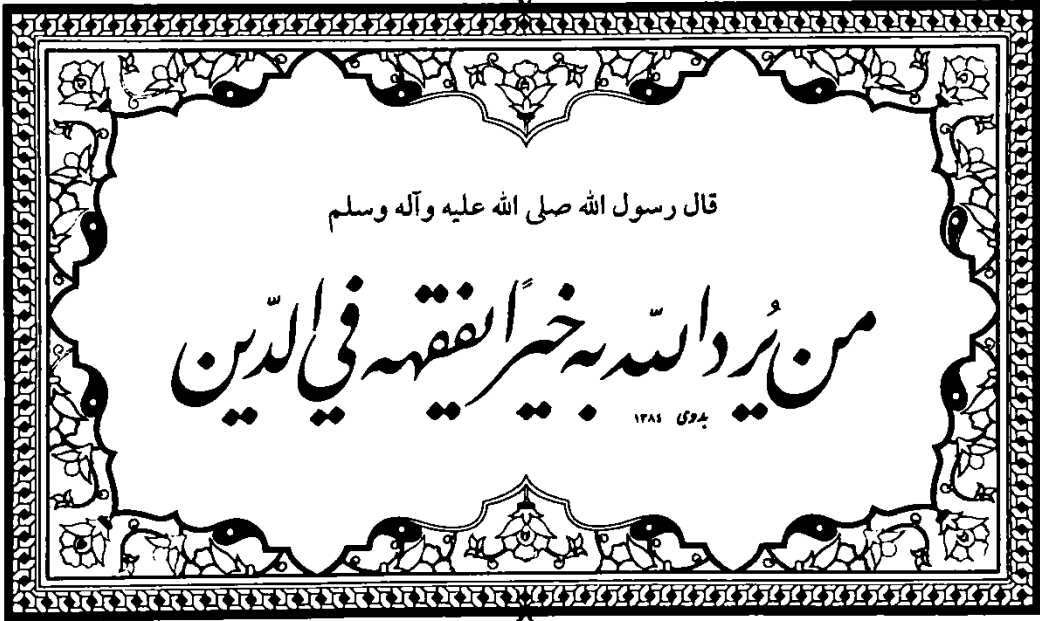 قال رسول الله صلى الله عليه وآله وسلم
من يُرد اللّه به خيرًا يفقهه في الدّين
بدوی ١٣٨٤